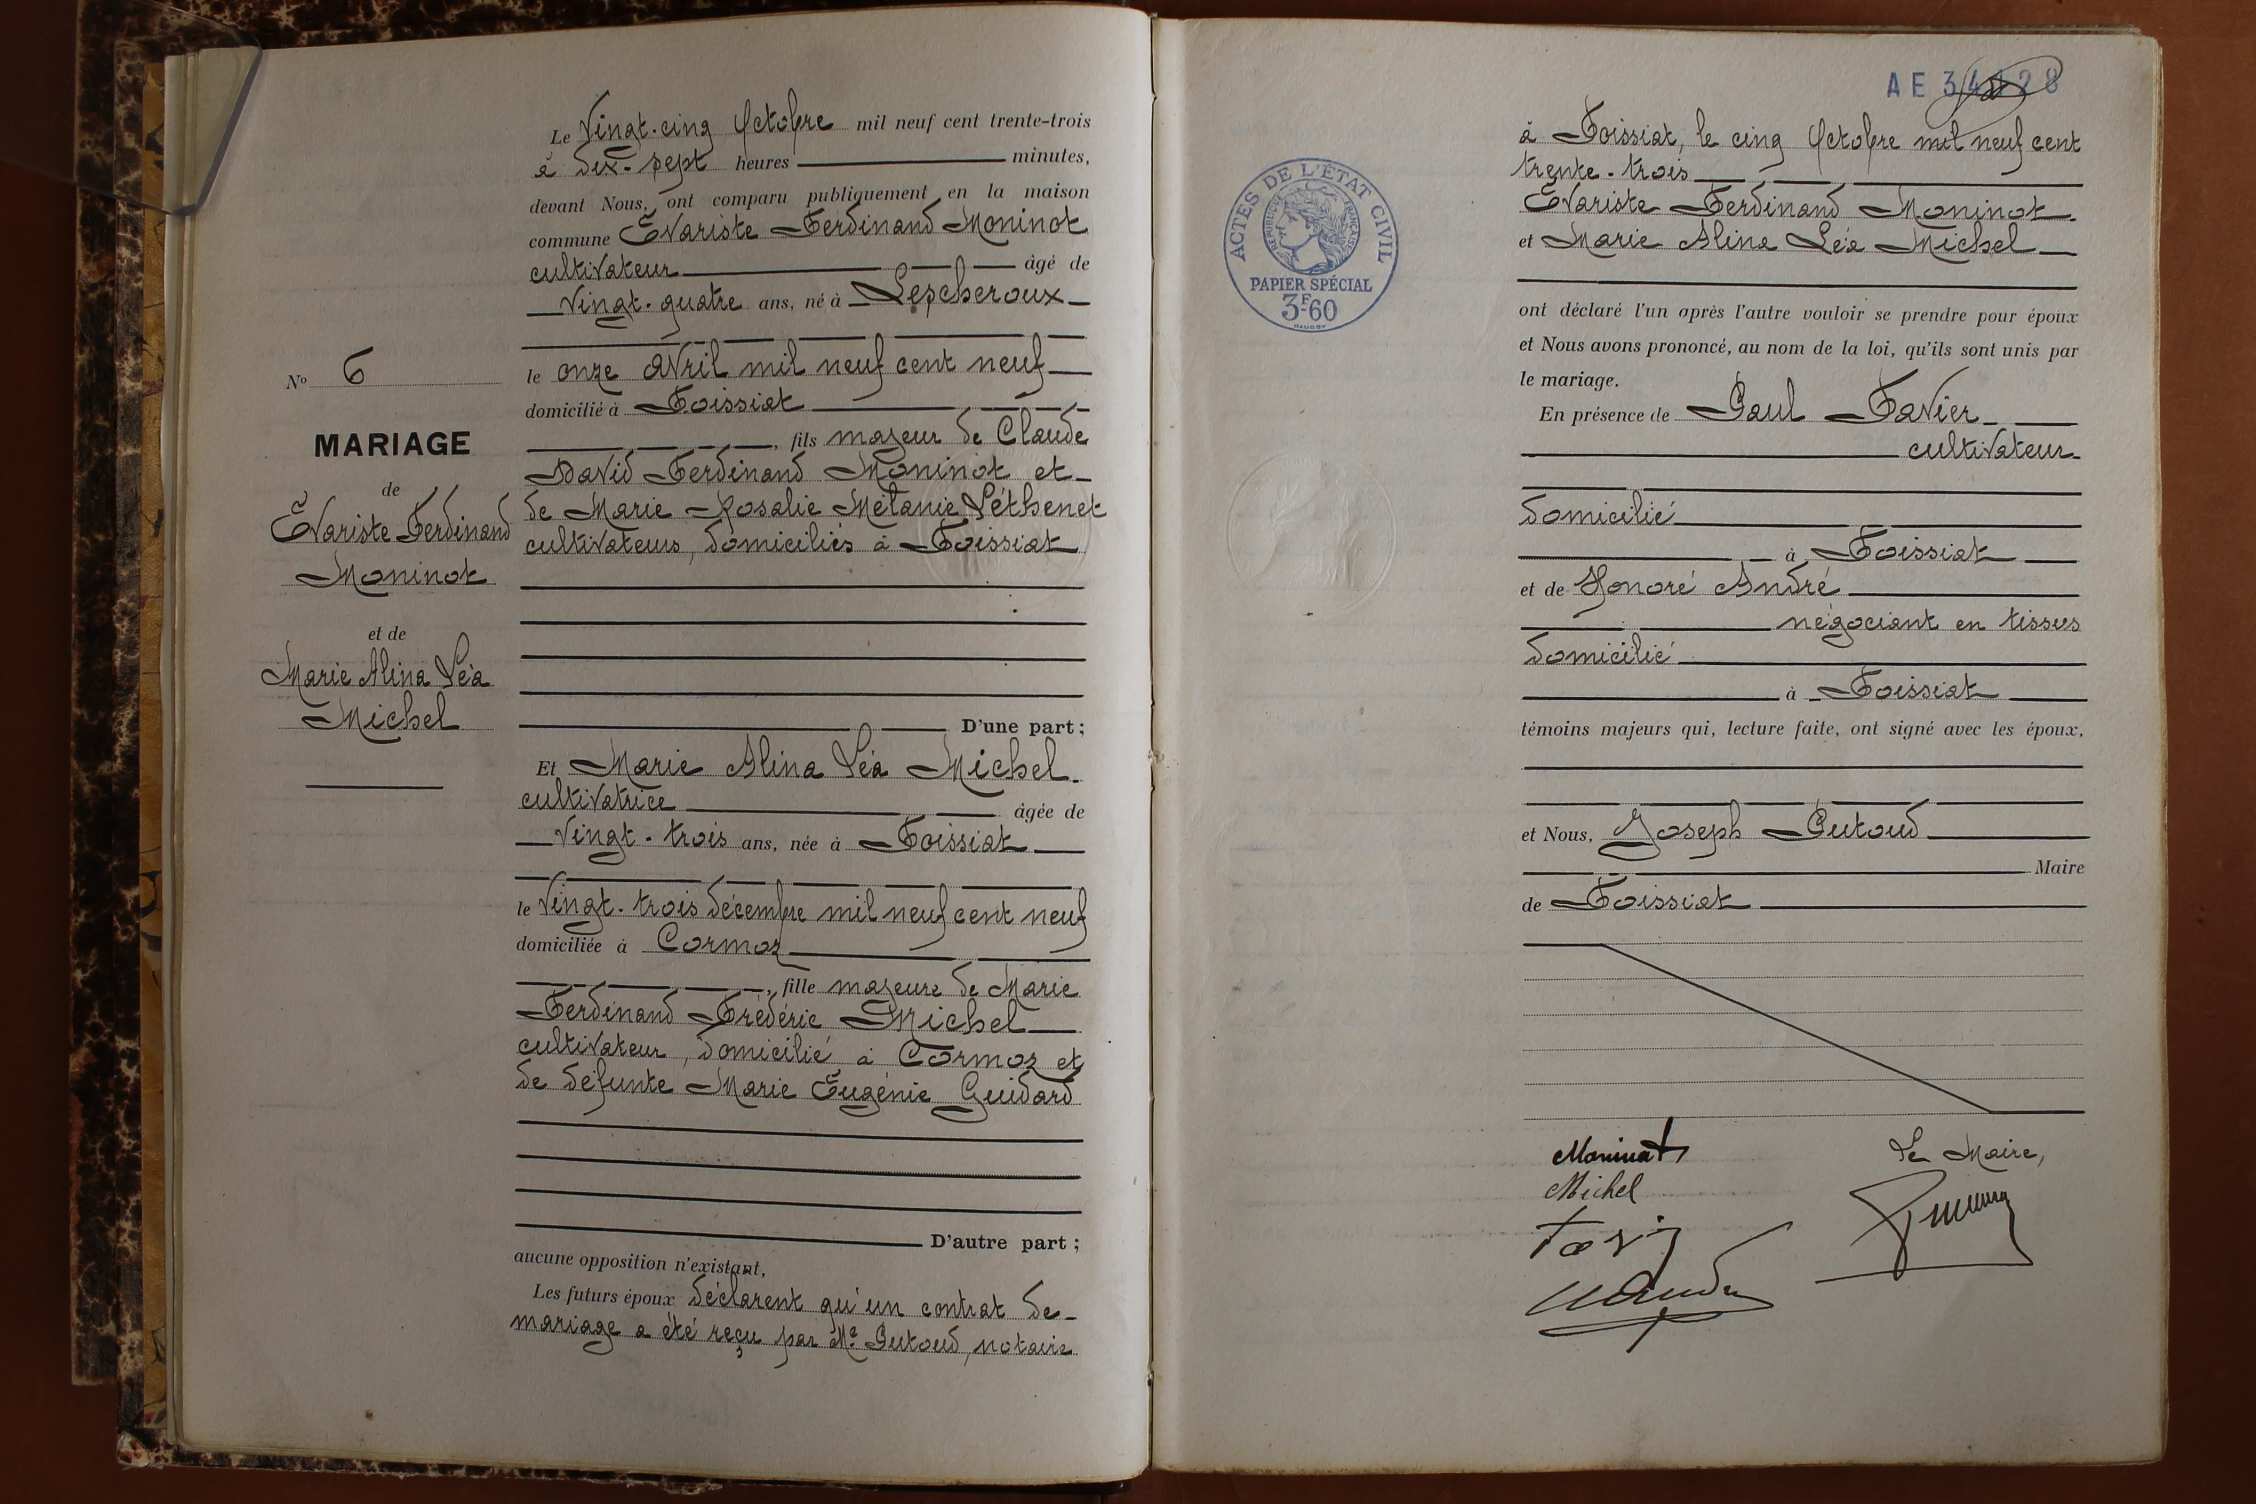 Le Vingt-cinq Octobre mil neuf cent trente-trois
à Dix-sept heures minutes,
devant Nous, ont comparu publiquement en la maison
commune Evariste Ferdinand Moninot
cultivateur âgé de
vingt-quatre ans, né à Lescheroux
le onze Avril mil neuf cent neuf
domicilié à Foissiat
, fils majeur de Claude
David Ferdinand Moninot et
de Marie Rosalie Mélanie Péthenet
cultivateurs, domiciliés à Foissiat
D'une part ;
Et Marie Alina Léa Michel
cultivatrice âgée de
Vingt-trois ans, née à Foissiat
le Vingt-trois décembre mil neuf cent neuf
domiciliée à Cormoz
, fille majeure de Marie
Ferdinand Frédéric Michel
cultivateur, domicilié à Cormoz et
de défunte Marie Eugénie Guidard
D'autre part ;
aucune opposition n'existant,
Les futurs époux déclarent qu'un contrat de
mariage a été reçu par Me Putoud, notaire
No 6
MARIAGE
de
Evariste Ferdinand
Moninot
et de
Marie Alina Léa
Michel
AE 34128
à Foissiat, le cinq Octobre mil neuf cent
trente-trois
Evariste Ferdinand Moninot
et Marie Alina Léa Michel
ont déclaré l'un après l'autre vouloir se prendre pour époux
et Nous avons prononcé, au nom de la loi, qu'ils sont unis par
le mariage.
En présence de Paul Favier
cultivateur
domicilié
à Foissiat
et de Honoré André
négociant en tissus
domicilié
à Foissiat
témoins majeurs qui, lecture faite, ont signé avec les époux,
et Nous, Joseph Putoud
Maire
de Foissiat
Moninot
Michel
Le Maire,
ACTES DE L'ÉTAT CIVIL
RÉPUBLIQUE FRANÇAISE
PAPIER SPÉCIAL
3F60